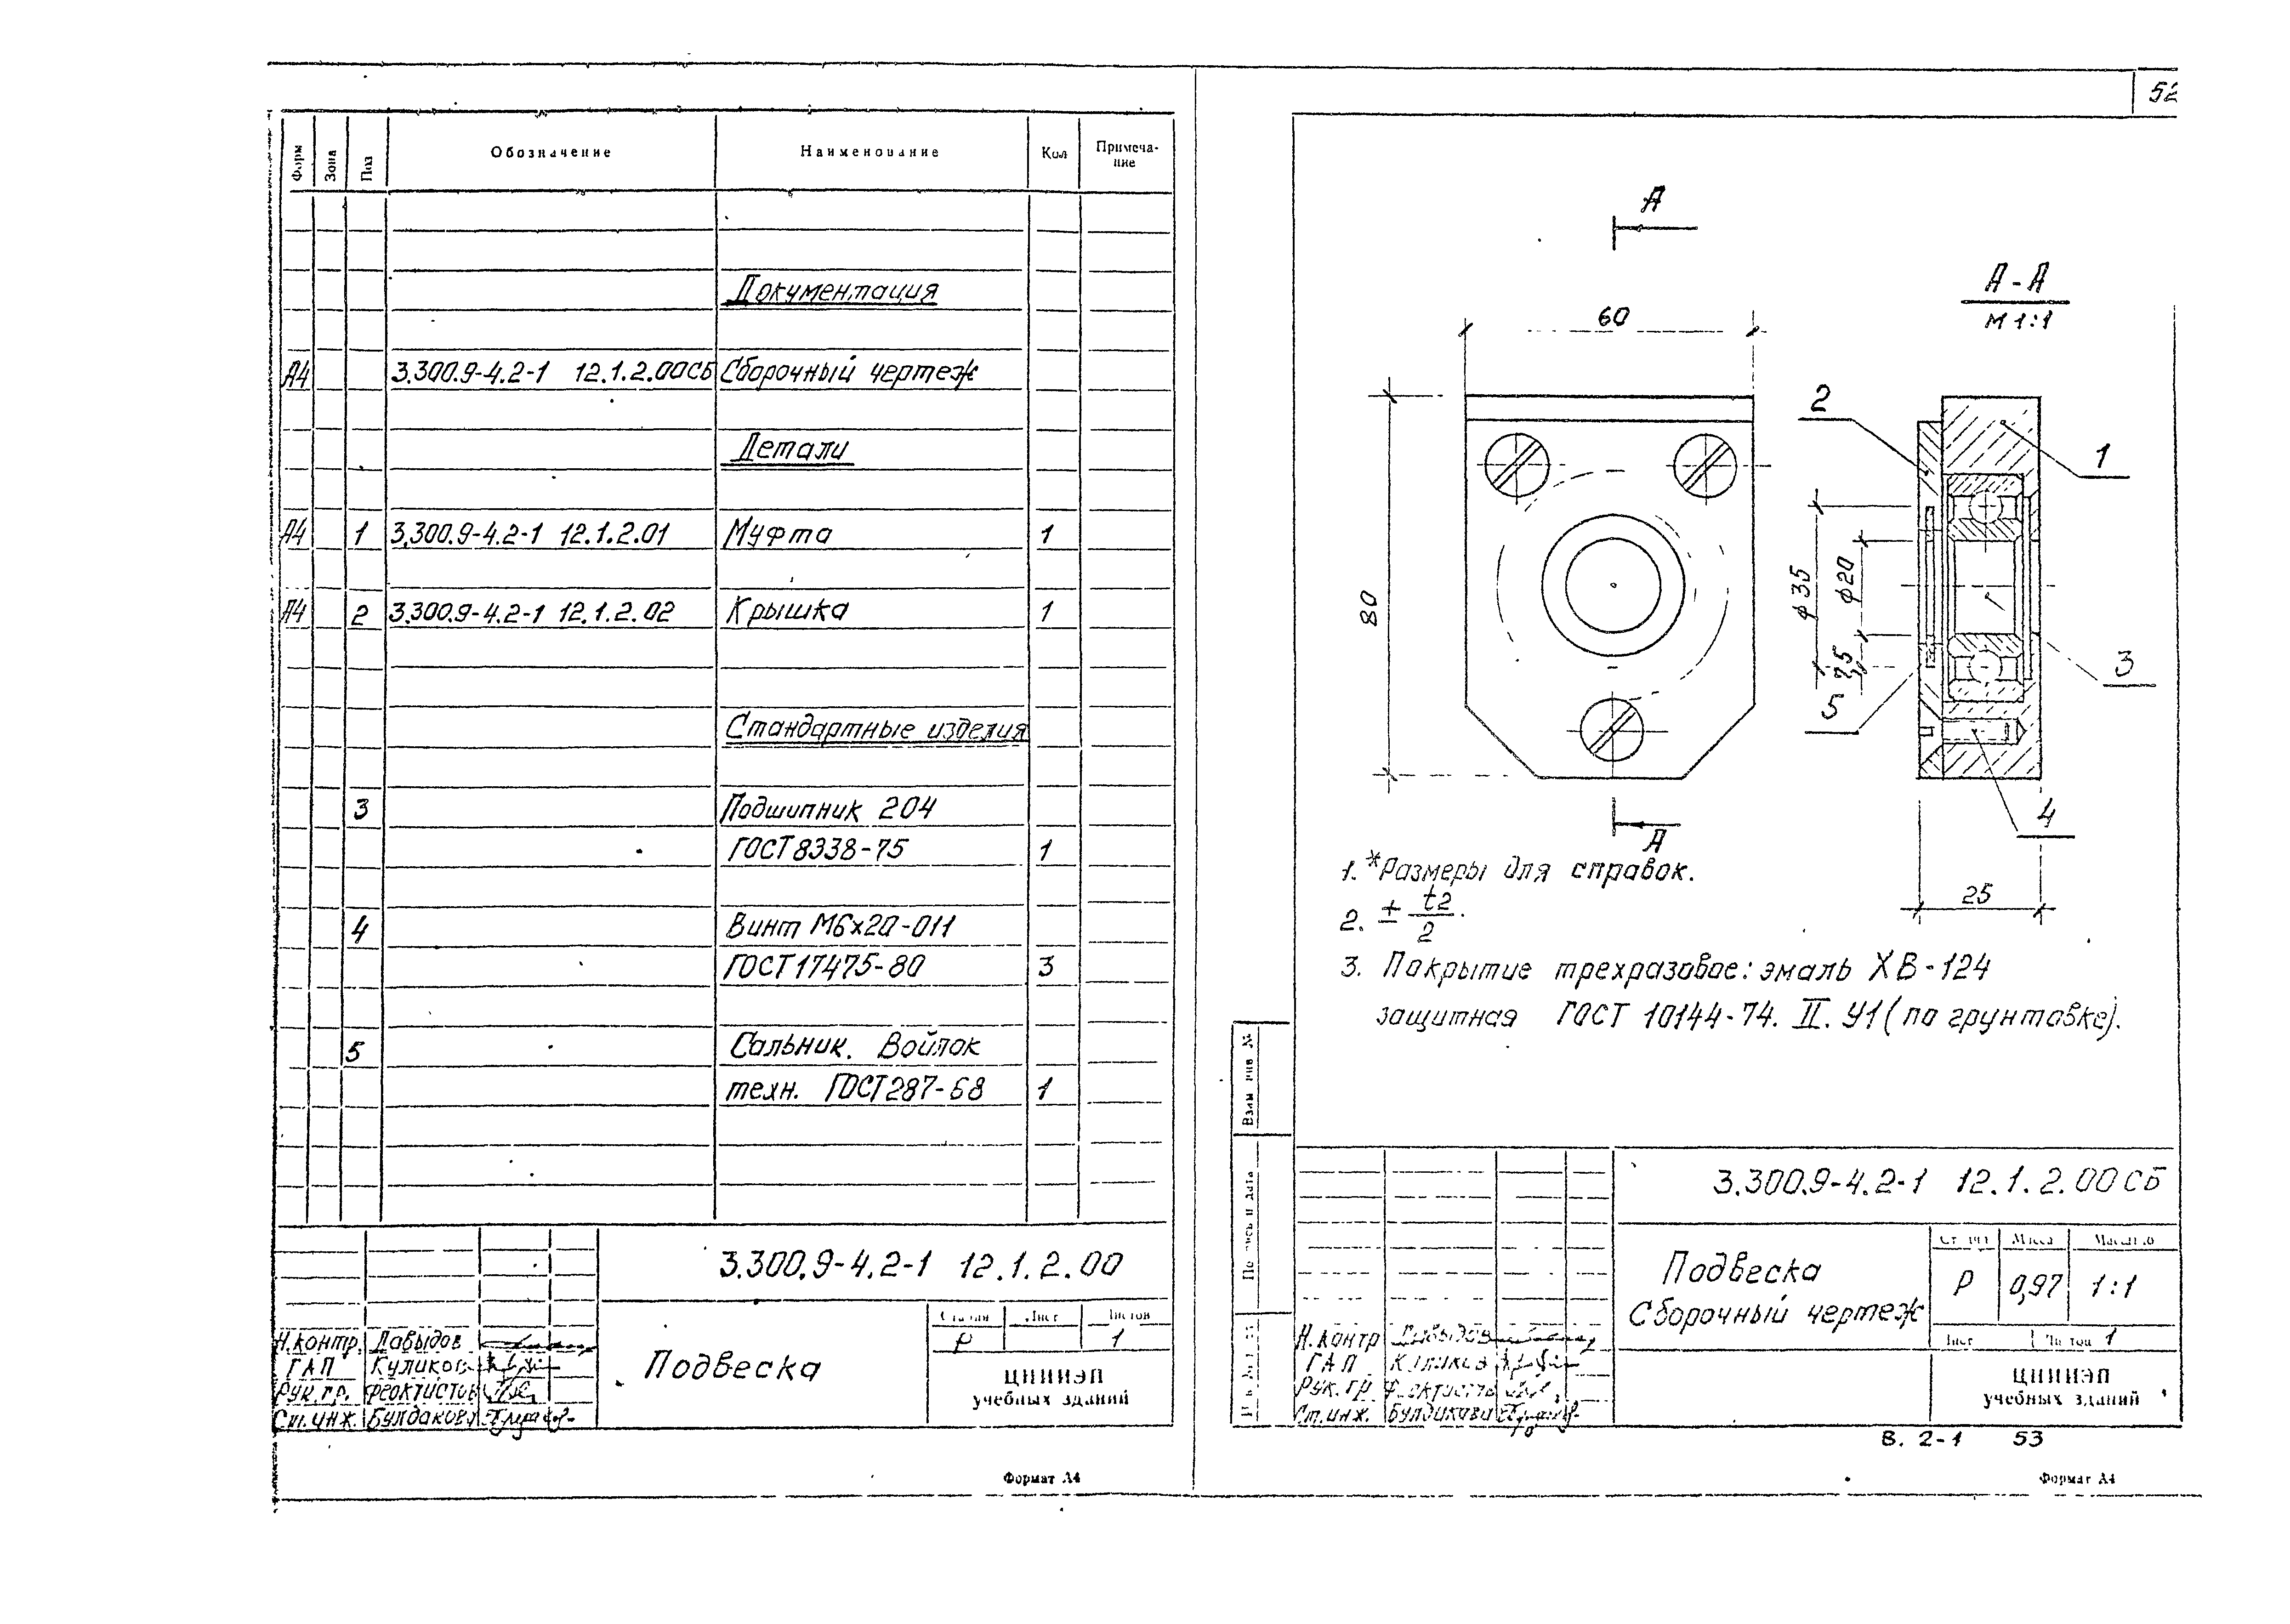 52
Форм Зона Поз Обозначение Наименование Кол Примеча-
ние
Документация
А4 3.300.9-4.2-1 12.1.2.00СБ Сборочный чертеж
Детали
А4 1 3.300.9-4.2-1 12.1.2.01 Муфта 1
А4 2 3.300.9-4.2-1 12.1.2.02 Крышка 1
Стандартные изделия
3 Подшипник 204
ГОСТ 8338-75 1
4 Винт М6х20-011
ГОСТ 17475-80 3
5 Сальник. Войлок
техн. ГОСТ 287-68 1
3.300.9-4.2-1 12.1.2.00
Стадия Лист Листов
Р 1
Н.контр. Давыдов
ГАП Куликов
Рук.гр. Феоктистов
Ст.инж. Булдакова
Подвеска
ЦНИИЭП
учебных зданий
Формат А4
А
А-А
М 1:1
60
80
2
1
ф35
ф20
7,5
3
5
4
25
А
1. *Размеры для справок.
2. ± t2
2
3. Покрытие трехразовое: эмаль ХВ-124
защитная ГОСТ 10144-74. II. У1 (по грунтовке).
Взам инв №
Подпись и дата
3.300.9-4.2-1 12.1.2.00СБ
Подвеска
Сборочный чертеж
Масса Масштаб
Р 0,97 1:1
Лист Листов 1
Н.контр Давыдов
ГАП Куликов
Рук.гр Феоктистов
Ст.инж. Булдакова
ЦНИИЭП
учебных зданий
В. 2-1 53
Формат А4